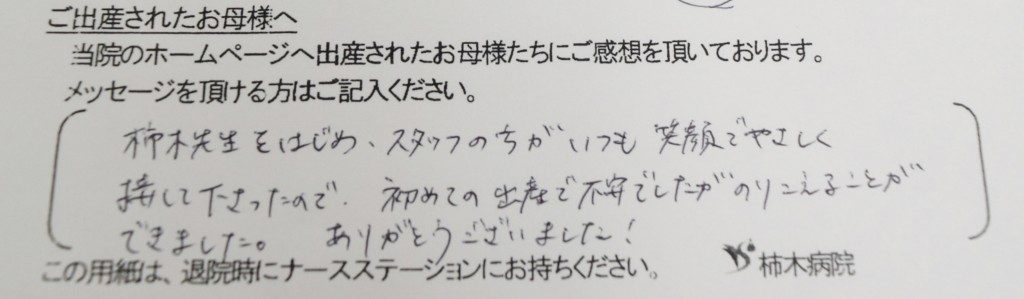 ご出産されたお母様へ
当院のホームページへ出産されたお母様たちにご感想を頂いております。
メッセージを頂ける方はご記入ください。
柿木先生をはじめ、スタッフの方がいつも笑顔でやさしく
接して下さったので、初めての出産で不安でしたがのりこえることが
できました。 ありがとうございました!
この用紙は、退院時にナースステーションにお持ちください。 柿木病院